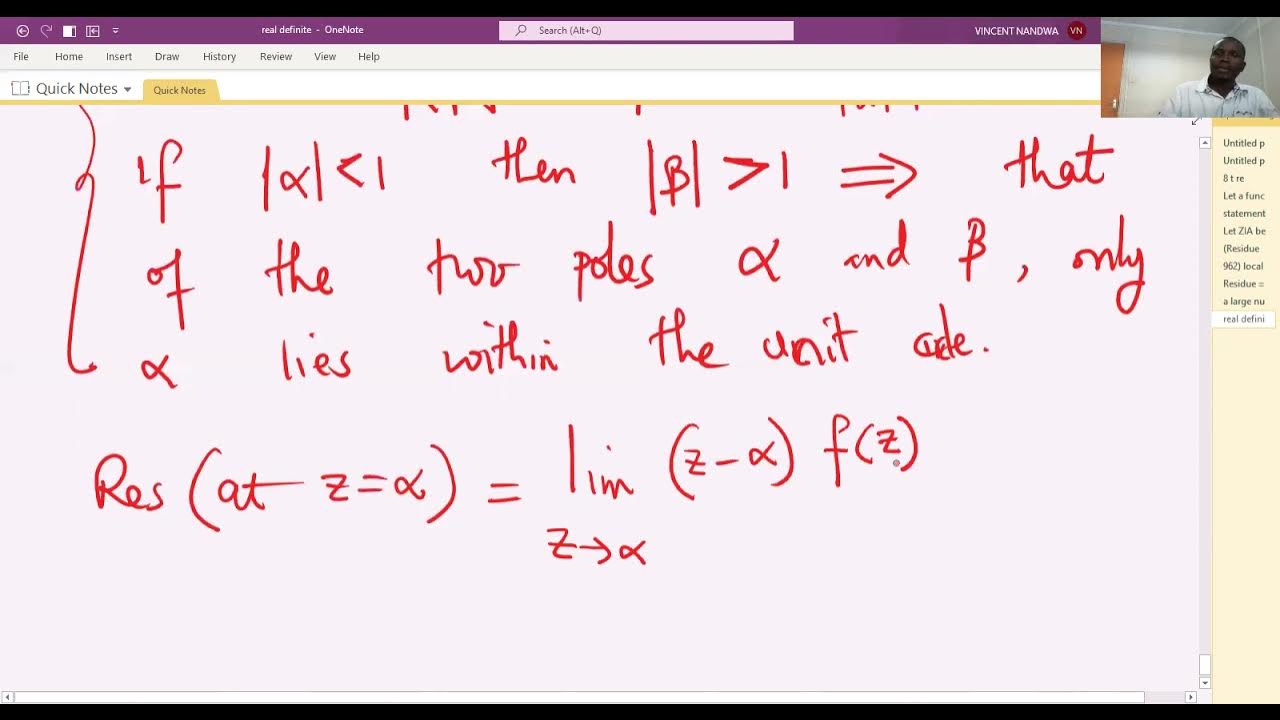 real definite - OneNote
Search (Alt+Q)
VINCENT NANDWA
VN
File Home Insert Draw History Review View Help
Quick Notes
Quick Notes
if |α| < 1 then |β| > 1 ⟹ that
of the two poles α and β, only
α lies within the unit circle.
Res (at z = α) = lim (z - α) f(z)
z → α
Untitled p
Untitled p
8 t re
Let a func
statement
Let ZIA be
(Residue
962) local
Residue =
a large nu
real defini